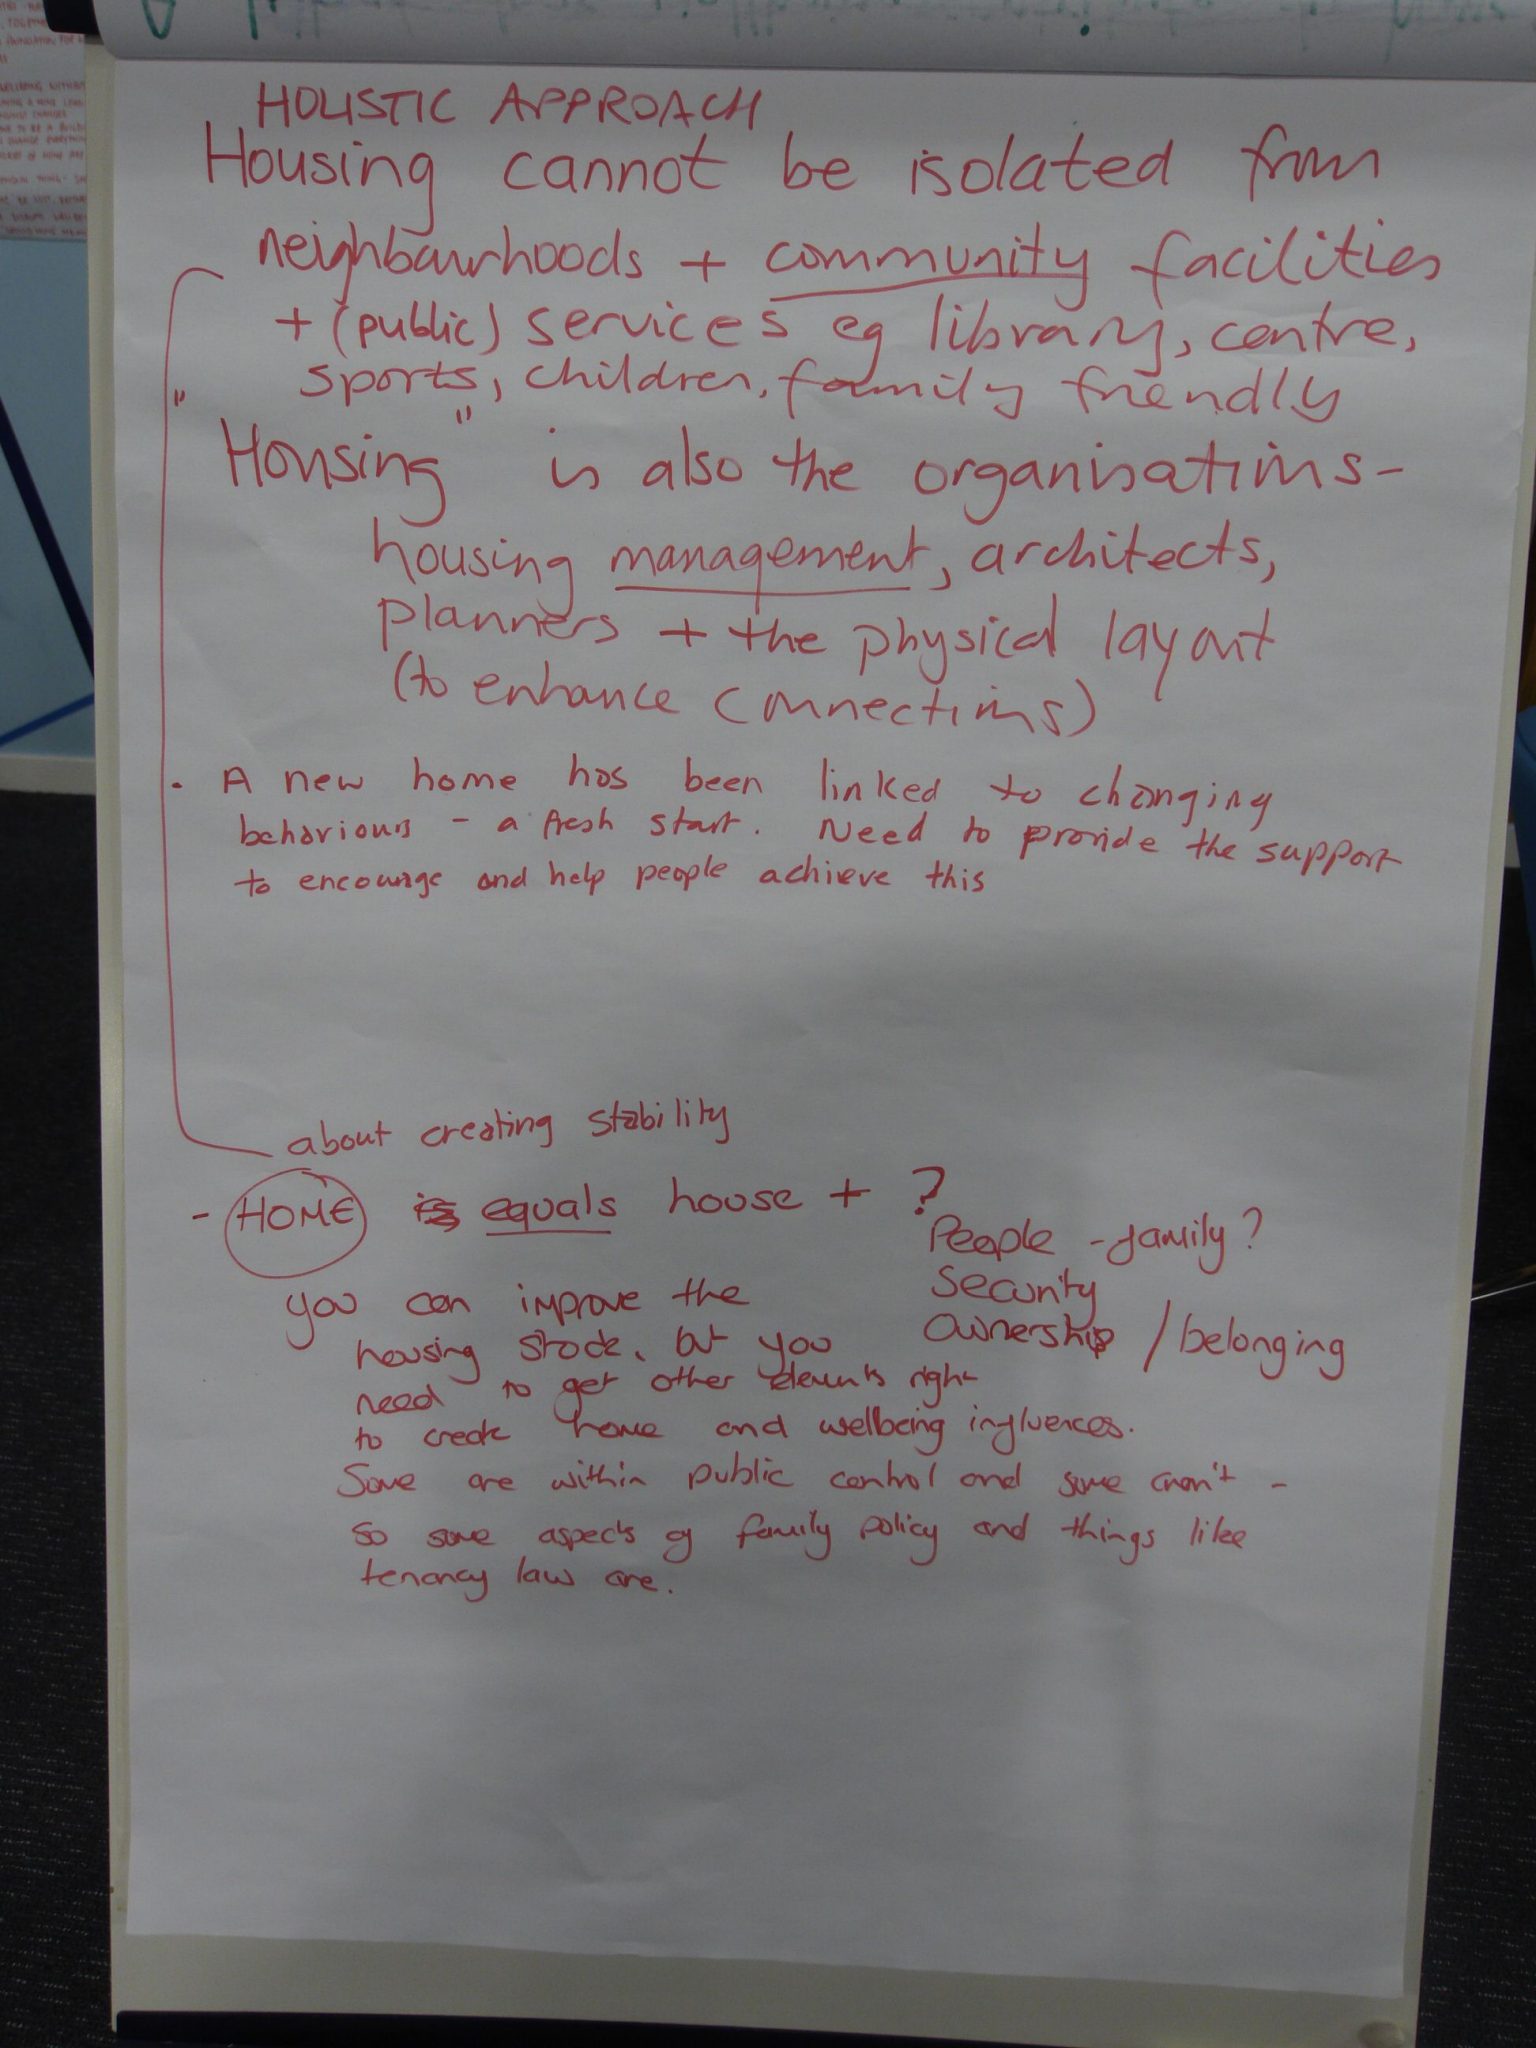 HOLISTIC APPROACH
Housing cannot be isolated from
neighbourhoods + community facilities
+ (public) services eg library, centre,
sports, children, family friendly
"Housing" is also the organisations -
housing management, architects,
planners + the physical layout
(to enhance connections)
. A new home has been linked to changing
behaviours - a fresh start. Need to provide the support
to encourage and help people achieve this
about creating stability
- HOME is equals house + ?
People - family?
Security
Ownership / belonging
you can improve the
housing stock, but you
need to get other elements right
to create home and wellbeing influences.
Some are within public control and some aren't -
so some aspects of family policy and things like
tenancy law are.